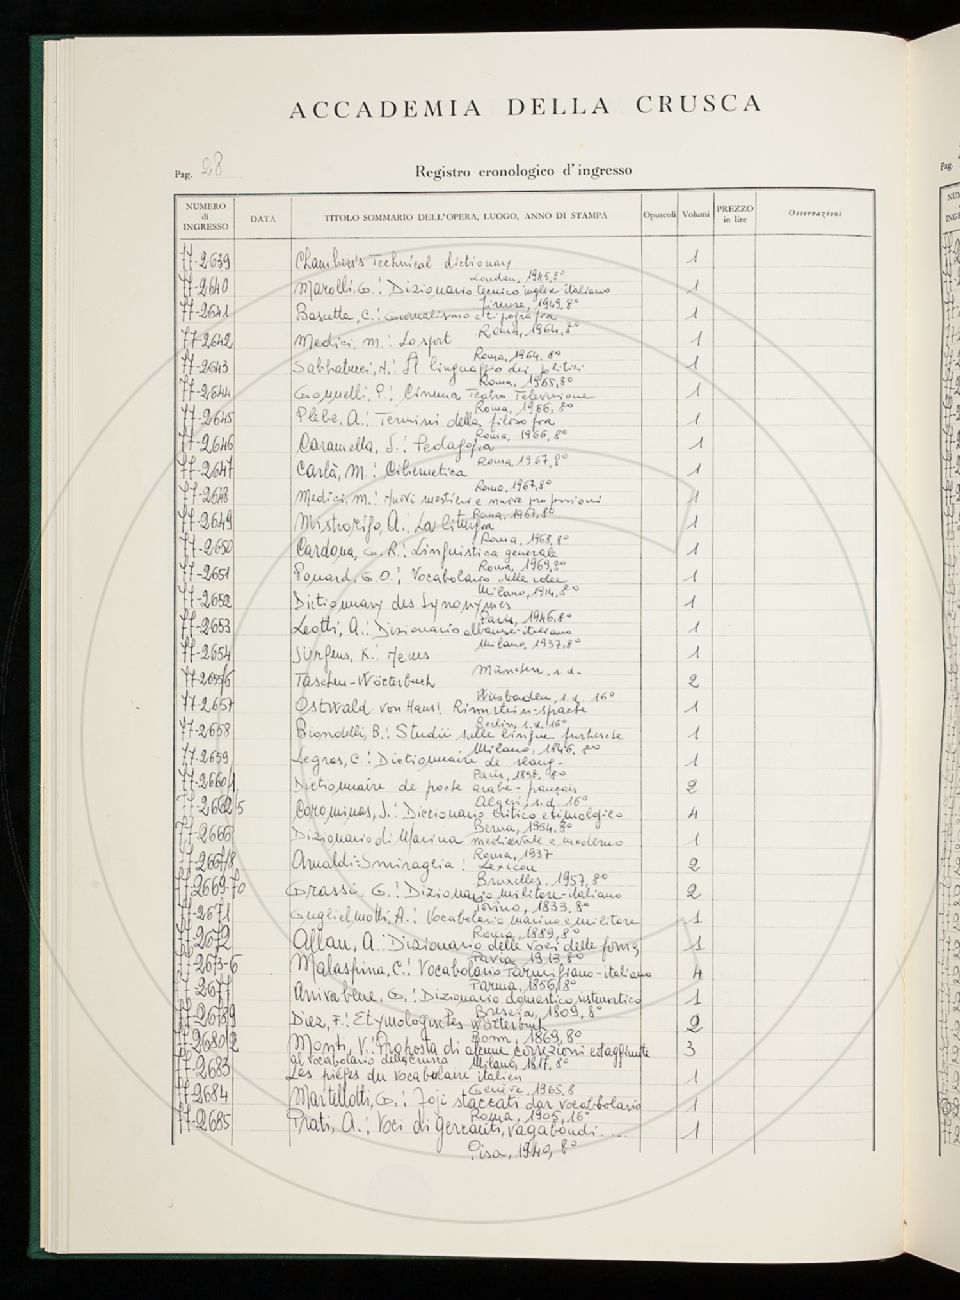 ACCADEMIA DELLA CRUSCA
Pag. 28
Registro cronologico d'ingresso
NUMERO di INGRESSO DATA TITOLO SOMMARIO DELL'OPERA, LUOGO, ANNO DI STAMPA Opuscoli Volumi PREZZO in lire Osservazioni
77-2639 Chamber's Technical dictionary 1
London, 1945, 8°
77-2640 Marolli, G.: Dizionario tecnico inglese italiano 1
Firenze, 1949, 8°
77-2641 Bascetta, C.: Giornalismo e tipografia 1
Roma, 1964, 8°
77-2642 Medici, M.: Lo sport 1
Roma, 1964, 8°
77-2643 Sabbatucci, N.: Il linguaggio dei politici 1
Roma, 1965, 8°
77-2644 P.: Cinema Teatro Televisione 1
Roma, 1966, 8°
77-2645 Plebe, A.: Termini della filosofia 1
Roma, 1966, 8°
77-2646 Caramella, S.: Pedagogia 1
Roma, 1967, 8°
77-2647 Carlà, M.: Cibernetica 1
Roma, 1967, 8°
77-2648 Medici, M.: Nuovi mestieri e nuove professioni 1
Roma, 1967, 8°
77-2649 Mistrorigo, A.: La liturgia 1
Roma, 1968, 8°
77-2650 Cardona, G.R.: Linguistica generale 1
Roma, 1969, 8°
77-2651 G.O.: Vocabolario delle idee 1
Milano, 1914, 8°
77-2652 Dictionnary des Synonymes 1
Paris, 1946, 8°
77-2653 Leotti, A.: Dizionario albanese-italiano 1
Milano, 1937, 8°
77-2654 Jürgens, K. 1
München, s.d.
77-2655/6 Taschen-Wörterbuch 2
Wiesbaden, s.d., 16°
77-2657 Ostwald von Hans: Rinnstein-sprache 1
Berlin, s.d., 16°
77-2658 Biondelli, B.: Studii sulle lingue furbesche 1
Milano, 1846, 8°
77-2659 Legras, C.: Dictionnaire de slang- 1
Paris, 1898, 8°
77-2660/1 Dictionnaire de poche arabe-français 2
Algeri, s.d. 16°
77-2662/5 Corominas, J.: Diccionario critico etimologico 4
Berna, 1954, 8°
77-2666 Dizionario di Marina medievale e moderno 1
Roma, 1937
77-2667/8 Arnaldi-Smiraglia: Lexicon 2
Bruxelles, 1957, 8°
77-2669-70 Grassi, G.: Dizionario militare-italiano 2
Torino, 1833, 8°
77-2671 Guglielmotti, A.: Vocabolario marino e militare 1
Roma, 1889, 8°
77-2672 A.: Dizionario delle voci delle forme 1
Pavia 1913 8°
77-2673-6 Malaspina, C.: Vocabolario Parmigiano-italiano 4
Parma, 1856, 8°
77-2677 Arrivabene, G.: Dizionario domestico sistematico 1
Brescia, 1809, 8°
77-2678/9 Diez, F.: Etymologisches Wörterbuch 2
Bonn, 1869, 8°
77-2680/2 Monti, V.: Proposta di alcune correzioni ed aggiunte 3
al vocabolario della crusca Milano, 1817, 8°
77-2683 Les pièges du vocabulaire italien 1
Genève, 1965, 8
77-2684 Martellotti, G.: Fogi staccati dar vocabbolario 1
Roma, 1905, 16°
77-2685 Prati, A.: Voci di gerganti, vagabondi.... 1
Pisa, 1940, 8°